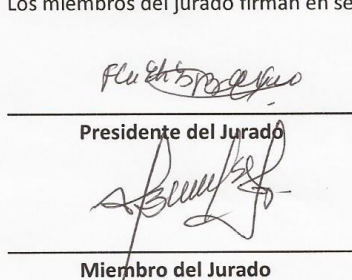 Los miembros del jurado firman en se
Presidente del Jurado
Miembro del Jurado